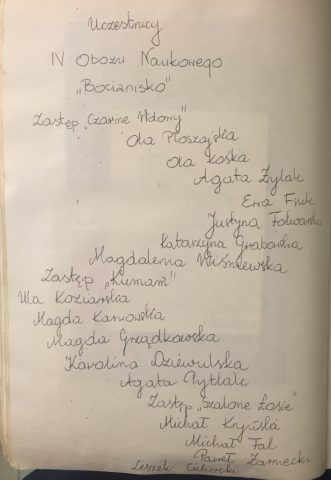 Uczestnicy
IV Obozu Naukowego
„Bocianisko”
Zastęp „Czarne Wdowy”
Ola Płoszajska
Ola Kośka
Agata Żylak
Ewa
Justyna Folwarska
Katarzyna Grabarska
Magdalena Wiśniewska
Zastęp „Kumam”
Ula Koziarska
Magda Karwowska
Magda Grządkowska
Karolina Dziewulska
Agata Pytlak
Zastęp „Szalone Łosie”
Michał
Michał Fal
Paweł Żarnecki
Leszek Cichocki